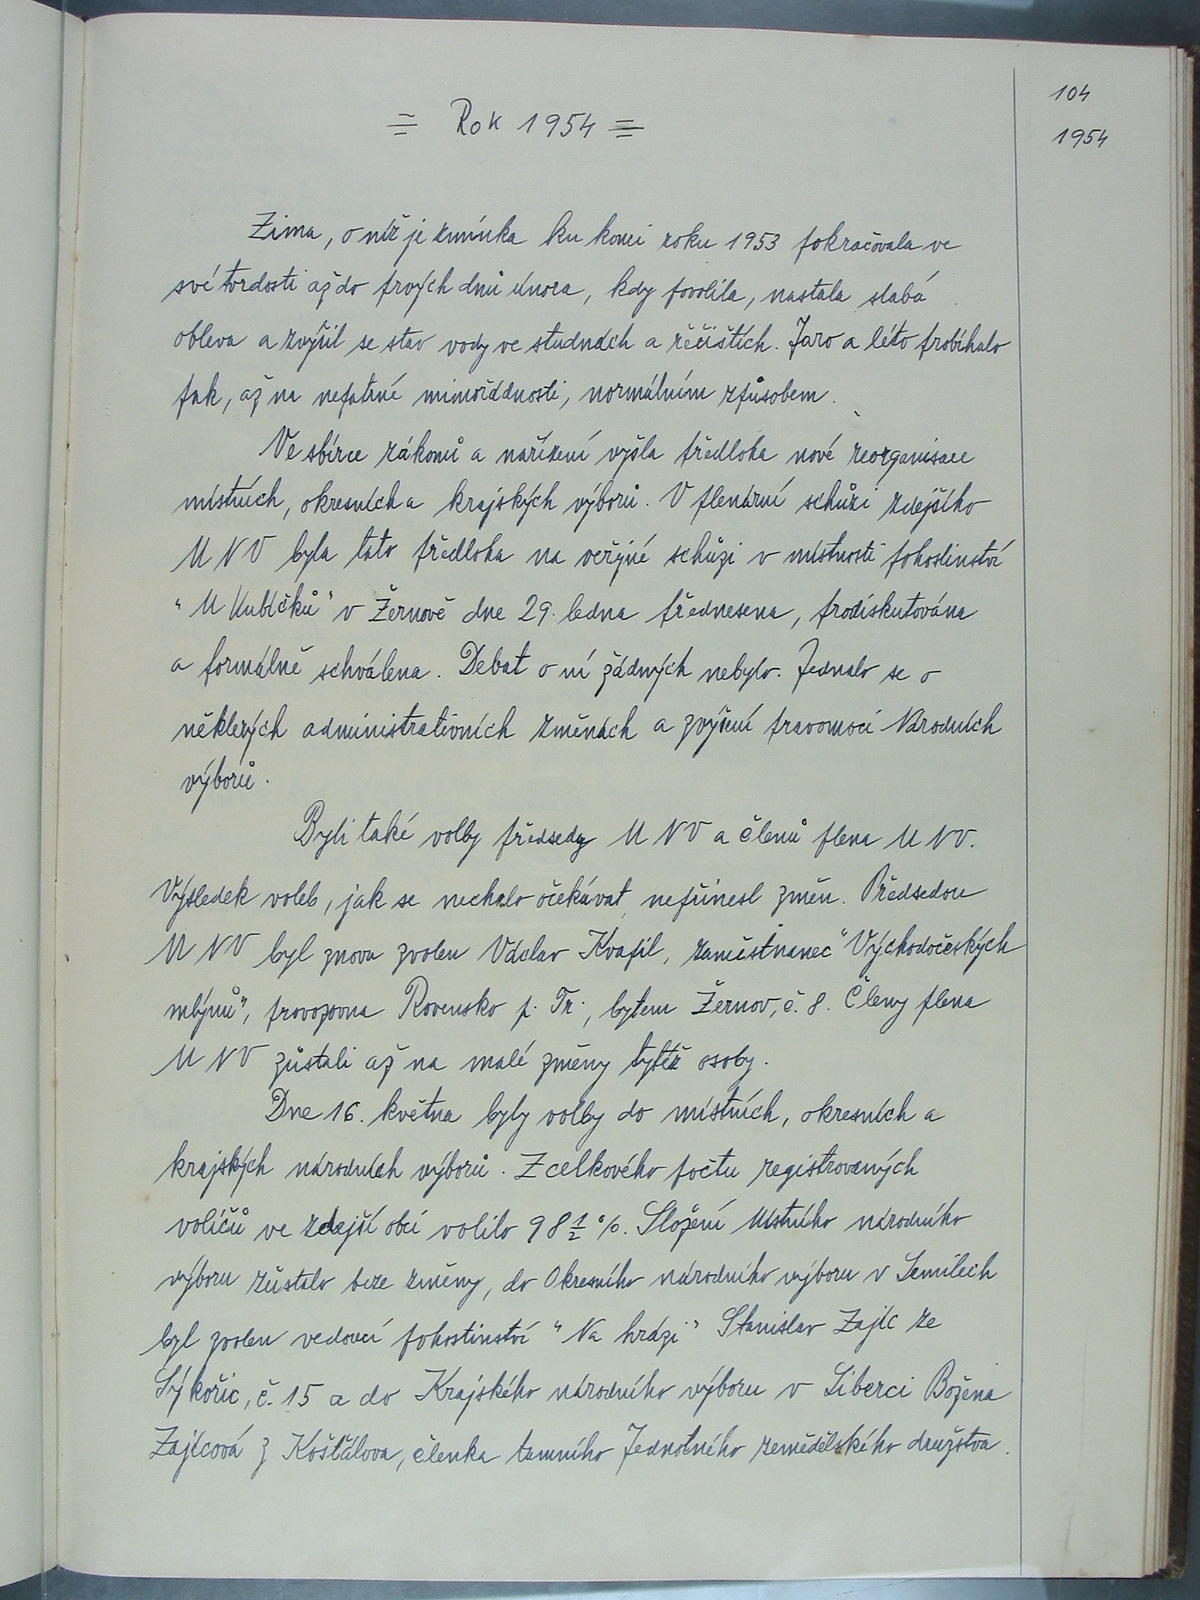 104
= Rok 1954 =
1954
Zima, o níž je zmínka ku konci roku 1953 pokračovala ve
své tvrdosti až do prvých dnů února, kdy povolila, nastala slabá
obleva a zvýšil se stav vody ve studnách a řečištích. Jaro a léto probíhalo
pak, až na nepatrné mimořádnosti, normálním způsobem.
Ve sbírce zákonů a nařízení vyšla předloha nové reorganisace
místních, okresních a krajských výborů. V plenární schůzi zdejšího
MNV byla tato předloha na veřejné schůzi v místnosti pohostinství
"U Kubíčků" v Žernově dne 29. ledna přednesena, prodiskutována
a formálně schválena. Debat o ní žádných nebylo. Jednalo se o
některých administrativních změnách a zvýšení pravomoci Národních
výborů.
Byli také volby předsedy MNV a členů plena MNV.
Výsledek voleb, jak se nechalo očekávat, nepřinesl změn. Předsedou
MNV byl znova zvolen Václav Kvapil, zaměstnanec "Východočeských
mlýnů", provozovna Rovensko p. Tr., bytem Žernov, č. 8. Členy plena
MNV zůstali až na malé změny tytéž osoby.
Dne 16. května byly volby do místních, okresních a
krajských národních výborů. Z celkového počtu registrovaných
voličů ve zdejší obci volilo 98 1/2 %. Složení Místního národního
výboru zůstalo beze změny, do Okresního národního výboru v Semilech
byl zvolen vedoucí pohostinství "Na hrázi" Stanislav Zajíc ze
Sýkořic, č. 15 a do Krajského národního výboru v Liberci Božena
Zajícová z Košťálova, členka tamního Jednotného zemědělského družstva.